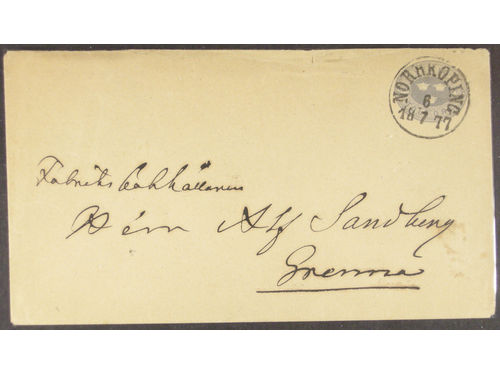 NORRKÖPING
6
18 7 77
Fabriksbokhållaren
Herr Alf Sandberg
Grenna